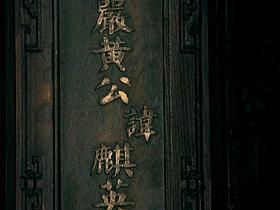 嚴黃公諱麒英